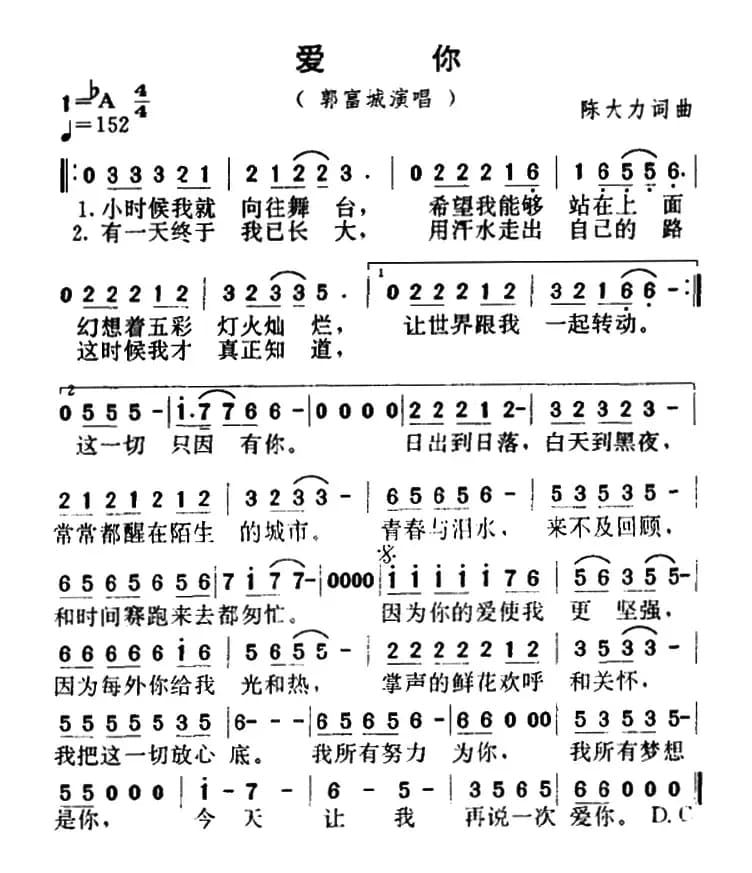 爱 你
（ 郭富城演唱 ）
1=♭A 4/4
♩=152
陈大力词曲
‖: 0 3 3 3 2 1 | 2 1 2 2 3 · | 0 2 2 2 1 6 | 1 6 5 5 6 ·
1. 小时候我就 向往舞 台， 希望我能够 站在上 面
2. 有一天终于 我已长 大， 用汗水走出 自己的 路
0 2 2 2 1 2 | 3 2 3 3 5 · | 1 0 2 2 2 1 2 | 3 2 1 6 6 - :‖
幻想着五彩 灯火灿 烂， 让世界跟我 一起转动。
这时候我才 真正知 道，
2
0 5 5 5 - | i · 7 7 6 6 - | 0 0 0 0 | 2 2 2 1 2 - | 3 2 3 2 3 - |
这一切 只因 有你。 日出到日落，白天到黑夜，
2 1 2 1 2 1 2 | 3 2 3 3 - | 6 5 6 5 6 - | 5 3 5 3 5 - |
常常都醒在陌生 的城市。 青春与泪水， 来不及回顾，
6 5 6 5 6 5 6 | 7 i 7 7 - | 0 0 0 0 | 𝄋 i i i i i 7 6 | 5 6 3 5 5 - |
和时间赛跑来去都匆忙。 因为你的爱使我 更 坚强，
6 6 6 6 6 i 6 | 5 6 5 5 - | 2 2 2 2 2 1 2 | 3 5 3 3 - |
因为每外你给我 光和热， 掌声的鲜花欢呼 和关怀，
5 5 5 5 5 3 5 | 6 - - - | 6 5 6 5 6 - | 6 6 0 0 0 | 5 3 5 3 5 - |
我把这一切放心 底。 我所有努力 为你， 我所有梦想
5 5 0 0 0 | i - 7 - | 6 - 5 - | 3 5 6 5 | 6 6 0 0 0 ‖
是你， 今 天 让 我 再说一次 爱你。 D.C